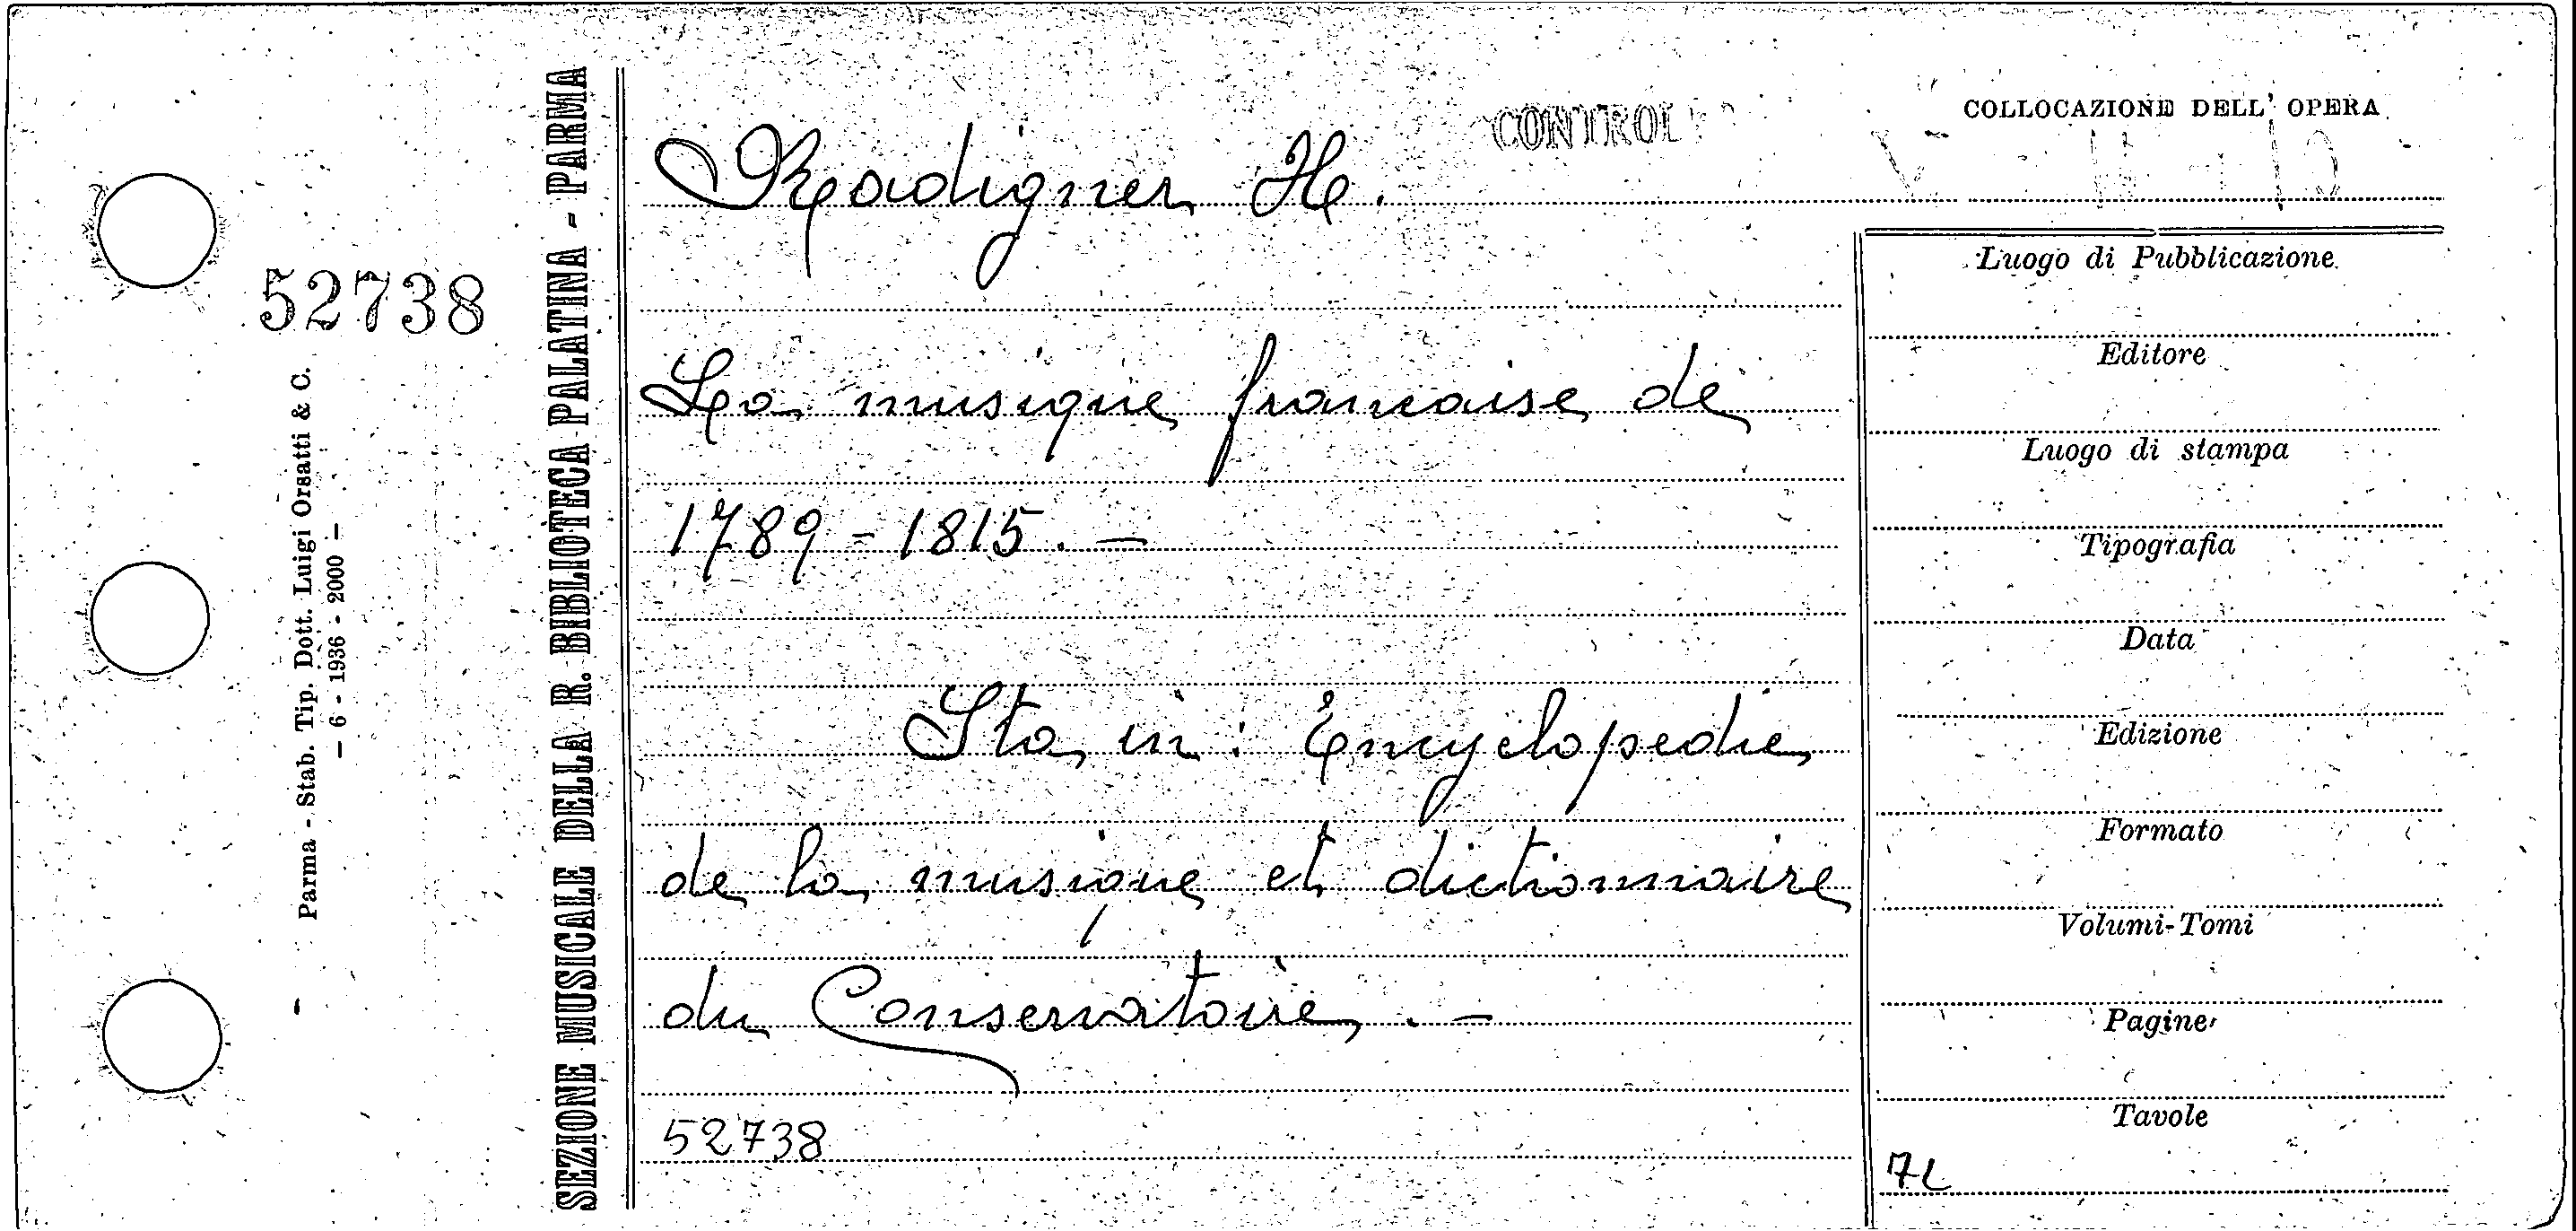 52738
Parma - Stab. Tip. Dott. Luigi Orsatti & C.
— 6 - 1936 - 2000 —
SEZIONE MUSICALE DELLA R. BIBLIOTECA PALATINA - PARMA
Radigner H.
La musique francaise de
1789 - 1815. —
Sta in: Encyclopedie
de la musique et dictionnaire
du Conservatoire. —
52738
COLLOCAZIONE DELL' OPERA
Luogo di Pubblicazione
Editore
Luogo di stampa
Tipografia
Data
Edizione
Formato
Volumi-Tomi
Pagine
Tavole